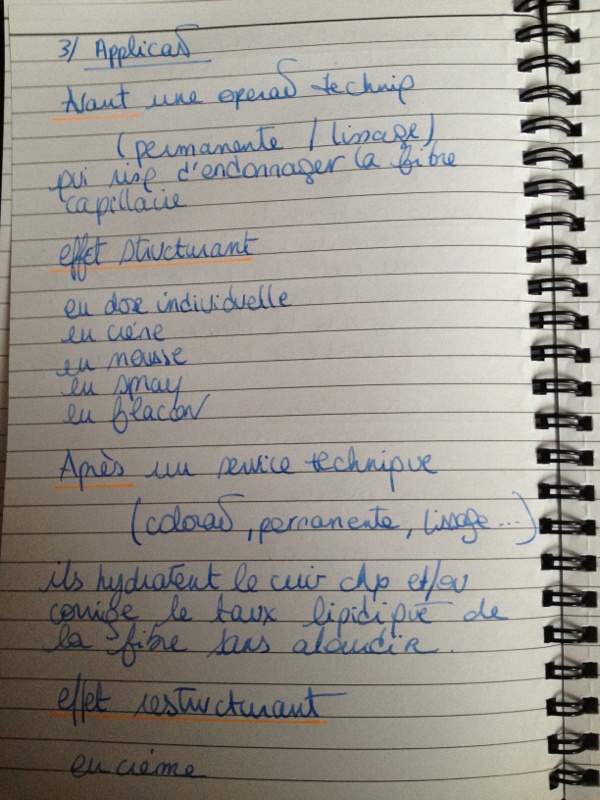 3/ Applicat°
Avant une operat° techniq
(permanente / lissage)
qui risq d'endonnager la fibre
capillaire
effet structurant
en dose individuelle
en crème
en mousse
en spray
en flacon
Après un service technique
(colorat°, permanente, lissage...)
ils hydratent le cuir chp et/ou
corrige le taux lipidique de
la fibre sans alourdir.
effet restructurant
en crème